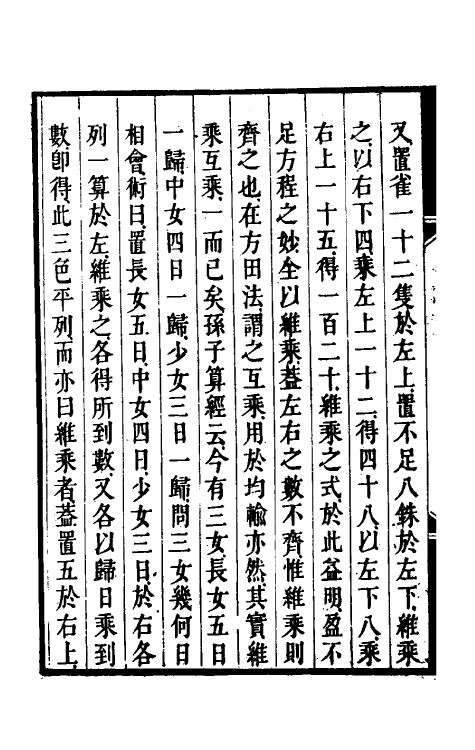 又置雀一十二隻於左上置不足八銖於左下維乘
之以右下四乘左上一十二得四十八以左下八乘
右上一十五得一百二十維乘之式於此益明盈不
足方程之妙全以維乘葢左右之數不齊惟維乘則
齊之也在方田法謂之互乘用於均輸亦然其實維
乘互乘一而已矣孫子算經云今有三女長女五日
一歸中女四日一歸少女三日一歸問三女幾何日
相會術曰置長女五日中女四日少女三日於右各
列一算於左維乘之各得所到數又各以歸日乘到
數卽得此三色平列而亦曰維乘者葢置五於右上